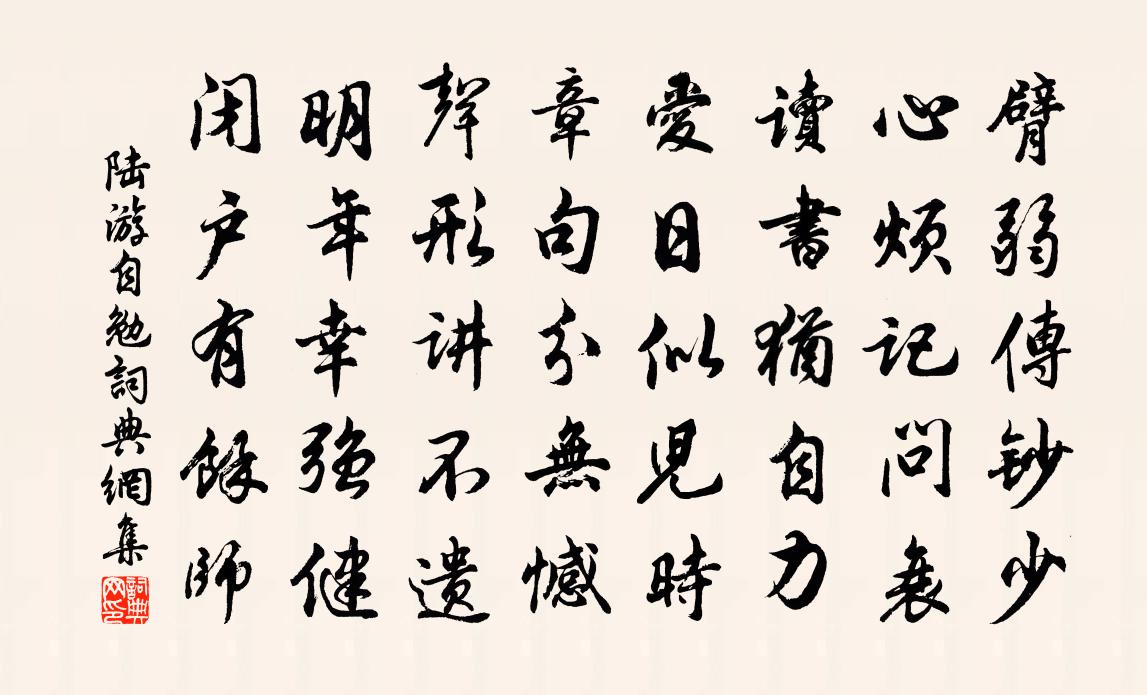 臂弱傳鈔少
心煩記問衰
讀書猶自力
愛日似兒時
章句分無憾
聲形讲不遗
明年幸强健
闭户有餘師
陆游自勉詞典網集
詞典网印